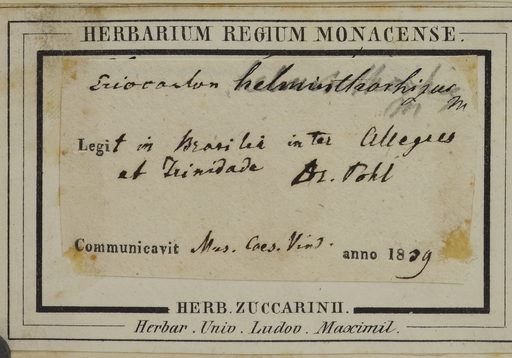 HERBARIUM REGIUM MONACENSE.
Eriocaulon helminthorhizus
m
Legit in Brasilia inter Allegres
et Trinidade Dr. Pohl
Communicavit Mus. Caes. Vind. anno 1839
HERB. ZUCCARINII.
Herbar. Univ. Ludov. Maximil.